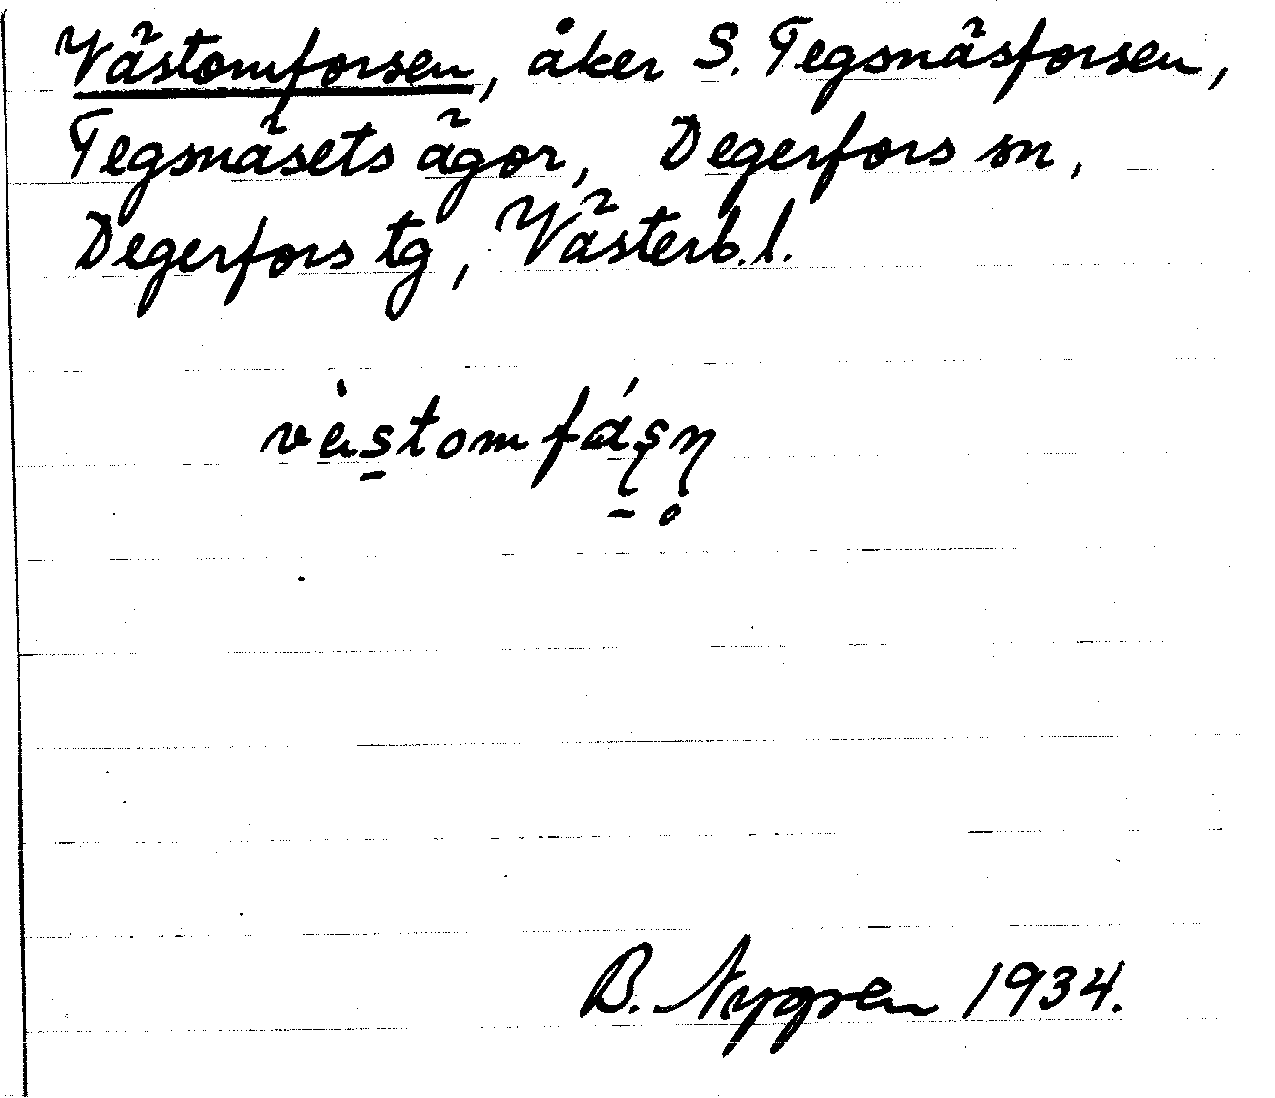 Västomforsen, åker S. Tegsnäsforsen,
Tegsnäsets ägor, Degerfors sn,
Degerfors tg, Västerb. l.
B. Nygren 1934.